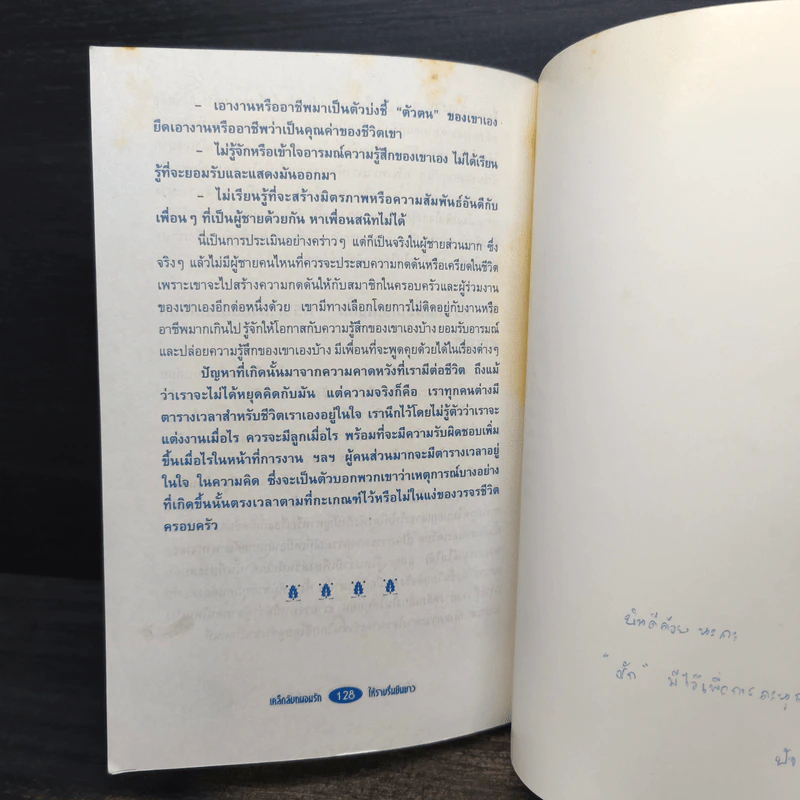 – เอางานหรืออาชีพมาเป็นตัวบ่งชี้ “ตัวตน” ของเขาเอง
ยึดเอางานหรืออาชีพว่าเป็นคุณค่าของชีวิตเขา
– ไม่รู้จักหรือเข้าใจอารมณ์ความรู้สึกของเขาเอง ไม่ได้เรียน
รู้ที่จะยอมรับและแสดงมันออกมา
– ไม่เรียนรู้ที่จะสร้างมิตรภาพหรือความสัมพันธ์อันดีกับ
เพื่อนๆ ที่เป็นผู้ชายด้วยกัน หาเพื่อนสนิทไม่ได้
นี่เป็นการประเมินอย่างคร่าวๆ แต่ก็เป็นจริงในผู้ชายส่วนมาก ซึ่ง
จริงๆ แล้วไม่มีผู้ชายคนไหนที่ควรจะประสบความกดดันหรือเครียดในชีวิต
เพราะเขาจะไปสร้างความกดดันให้กับสมาชิกในครอบครัวและผู้ร่วมงาน
ของเขาเองอีกต่อหนึ่งด้วย เขามีทางเลือกโดยการไม่ติดอยู่กับงานหรือ
อาชีพมากเกินไป รู้จักให้โอกาสกับความรู้สึกของเขาเองบ้าง ยอมรับอารมณ์
และปล่อยความรู้สึกของเขาเองบ้าง มีเพื่อนที่จะพูดคุยด้วยได้ในเรื่องต่างๆ
ปัญหาที่เกิดนั้นมาจากความคาดหวังที่เรามีต่อชีวิต ถึงแม้
ว่าเราจะไม่ได้หยุดคิดกับมัน แต่ความจริงก็คือ เราทุกคนต่างมี
ตารางเวลาสำหรับชีวิตเราเองอยู่ในใจ เรานึกไว้โดยไม่รู้ตัวว่าเราจะ
แต่งงานเมื่อไร ควรจะมีลูกเมื่อไร พร้อมที่จะมีความรับผิดชอบเพิ่ม
ขึ้นเมื่อไรในหน้าที่การงาน ฯลฯ ผู้คนส่วนมากจะมีตารางเวลาอยู่
ในใจ ในความคิด ซึ่งจะเป็นตัวบอกพวกเขาว่าเหตุการณ์บางอย่าง
ที่เกิดขึ้นนั้นตรงเวลาตามที่กะเกณฑ์ไว้หรือไม่ในแง่ของวรจรชีวิต
ครอบครัว
เคล็ดลับถนอมรัก 128 ให้ราบรื่นยืนยาว
"รัก" มีไว้เพื่อการ